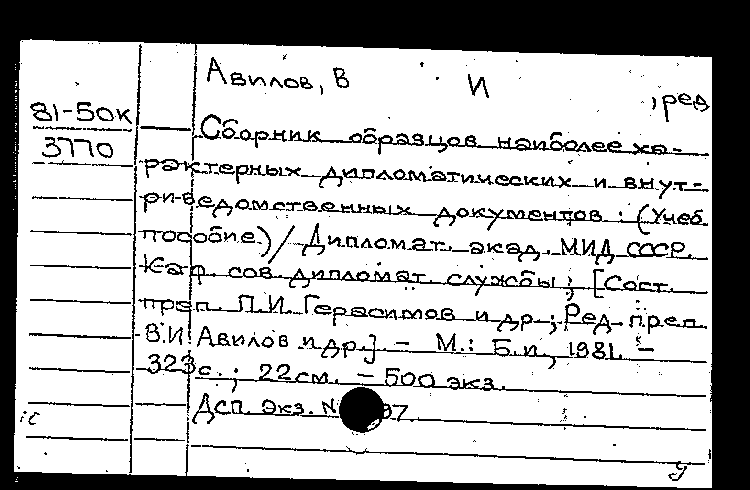 Авилов, В И , ред
81-50к
3770
Сборник образцов наиболее ха-
рактерных дипломатических и внут-
ри-ведомственных документов : (Учеб.
пособие.) / Дипломат. акад. МИД СССР.
Каф. сов. дипломат. службы ; [Сост.
преп. П.И. Герасимов и др.; Ред. преп.
В.И. Авилов и др.] - М.: Б.и., 1981. -
323 с. ; 22 см. - 500 экз.
Дсп. Экз. N 37.
ic
У